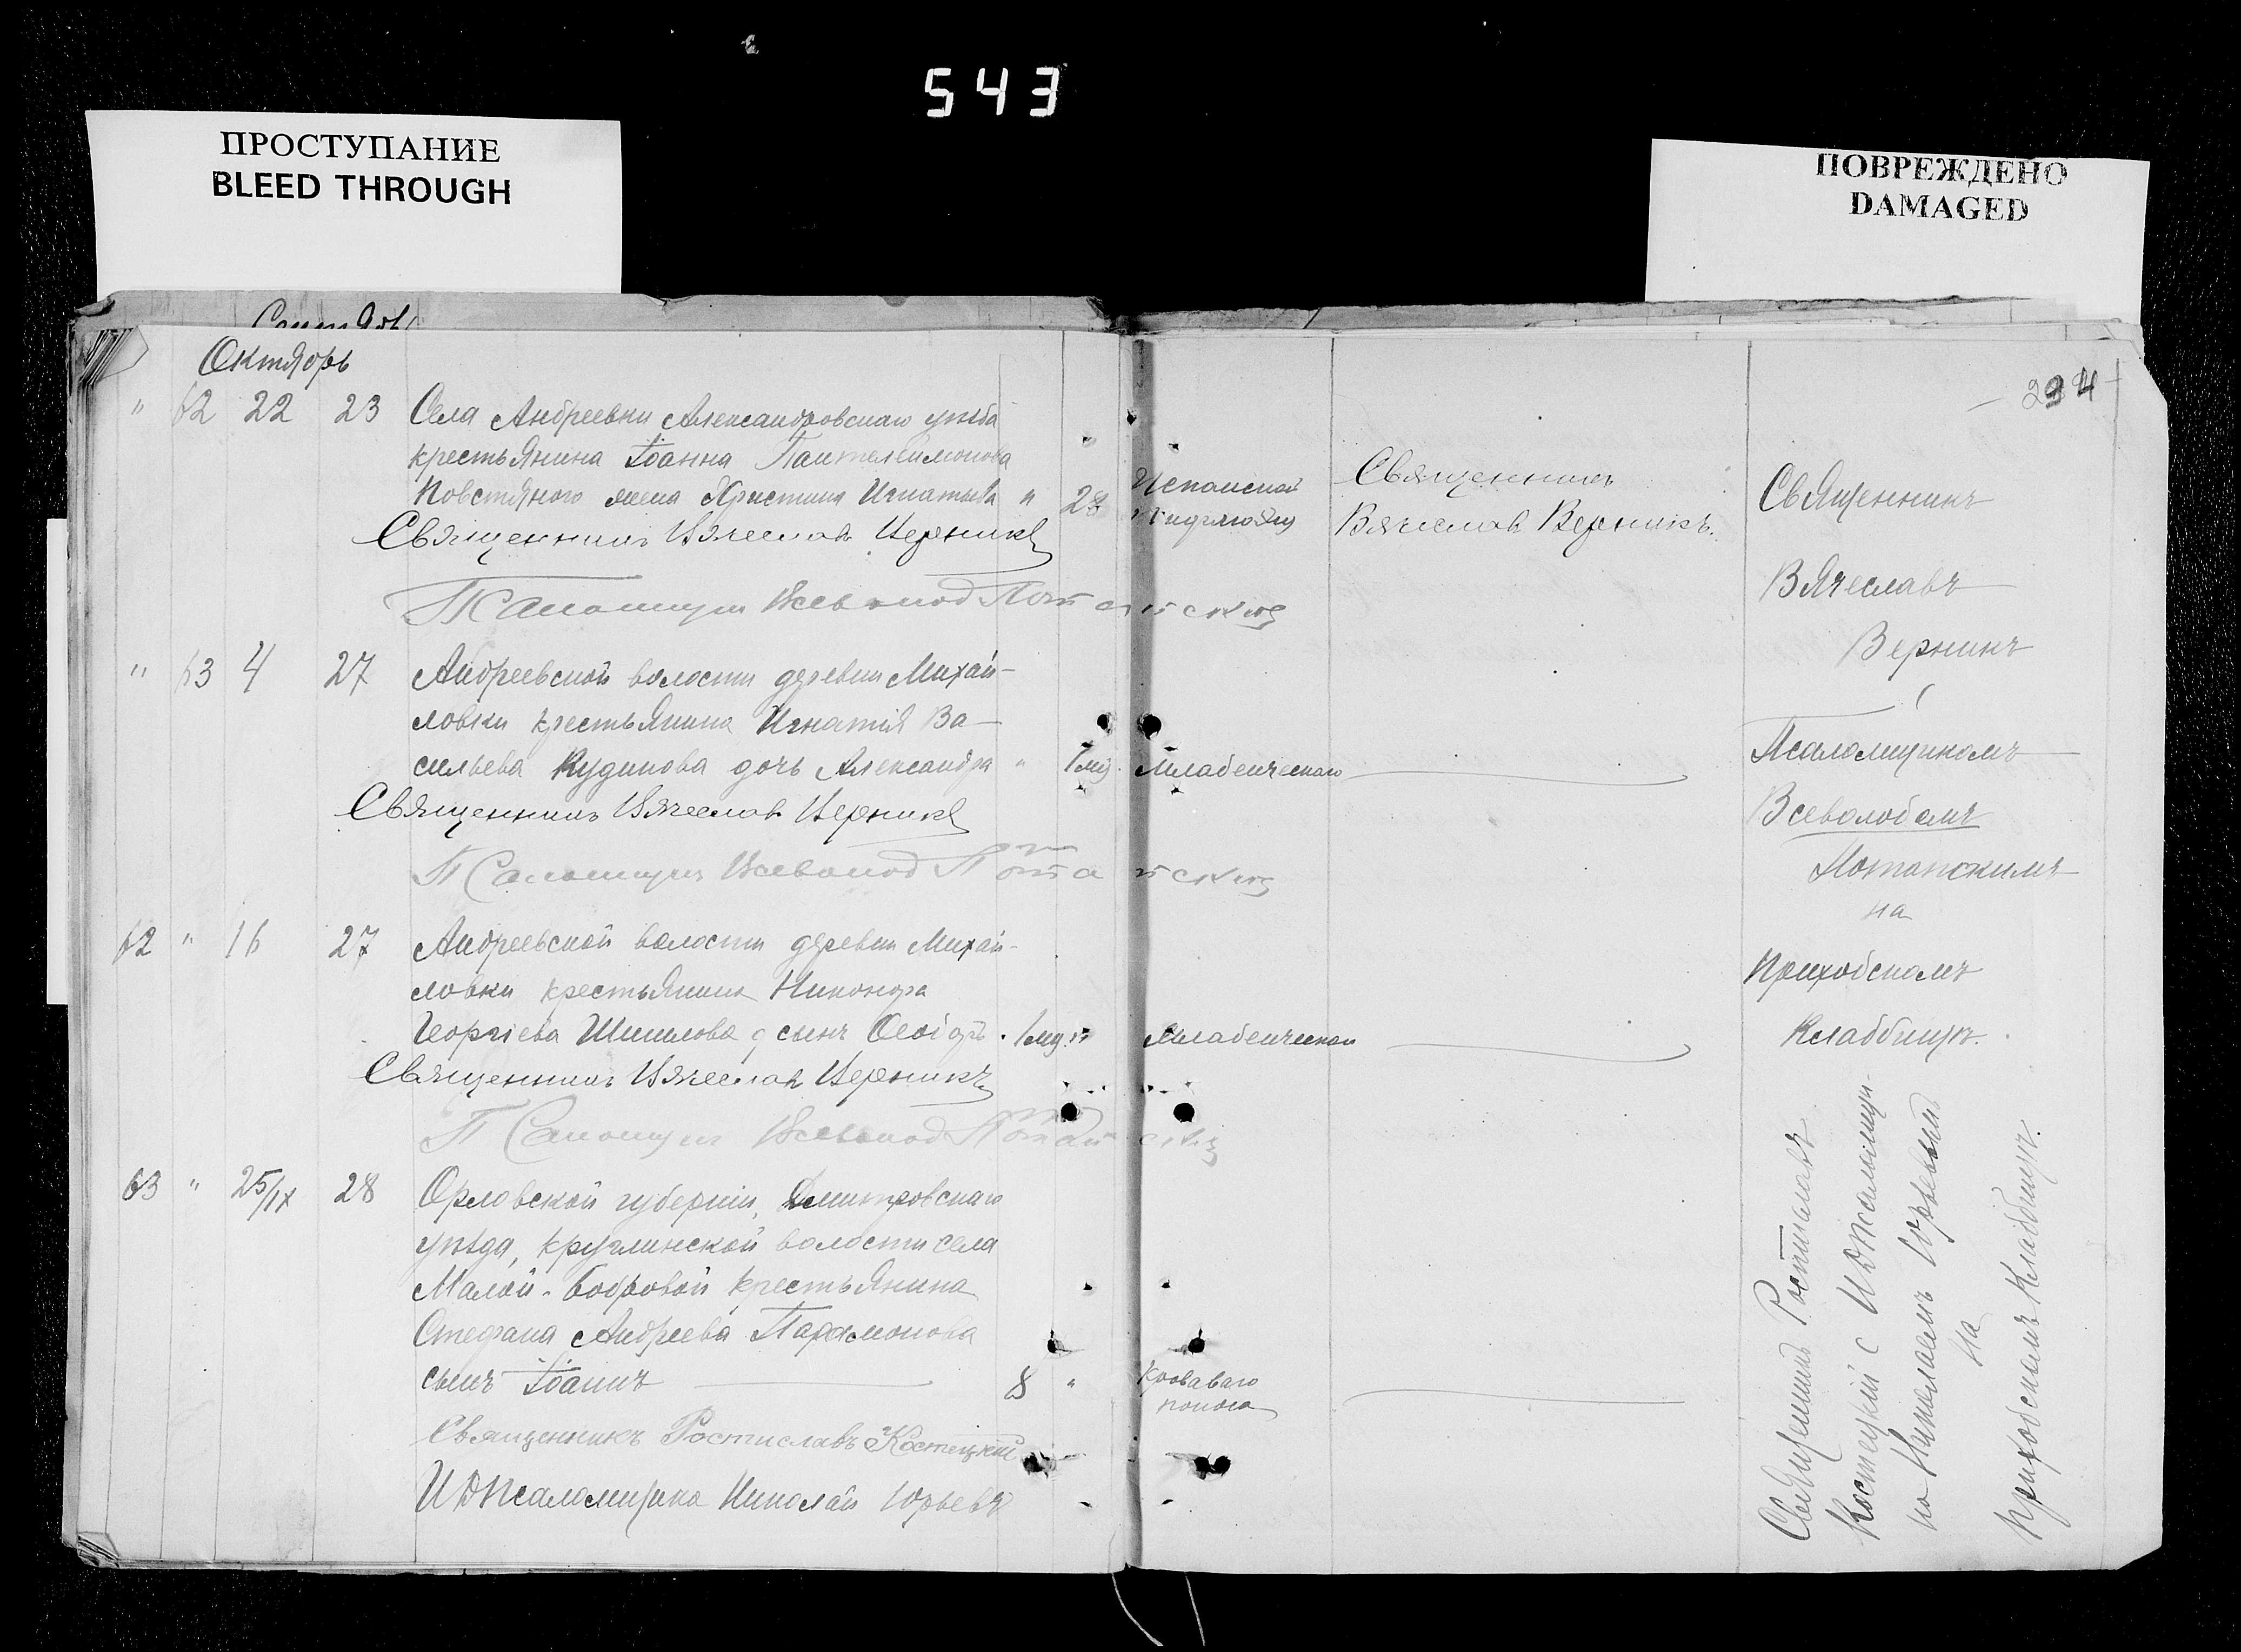 543
ПРОСТУПАНИЕ
BLEED THROUGH
ПОВРЕЖДЕНО
DAMAGED
Октябрь
234
" 62 22 23 Села Андреевки Александровскаго уѣзда
крестьянина Іоанна Пантелеимонова
Повстяного жена Христина Игнатьева " 28 Испанской
Священникъ Вячеслав Верникъ
Псаломщик Всеволод Потапский
Священникъ
Вячеслав Верникъ.
" 63 4 27 Андреевской волости деревни Михай-
ловки крестьянина Игнатія Ва-
сильева Кудинова дочь Александра " 1 мѣс. младенческаго
Священникъ Вячеслав Верникъ
Псаломщик Всеволод Потапский
62 " 16 27 Андреевской волости деревни Михай-
ловки крестьянина Никонора
Георгіева Шишлова сынъ Ѳеодоръ младенческой
Священникъ Вячеслав Верникъ
Псаломщик Всеволод Потапский
63 " 25/IX 28 Орловской губерніи, Дмитровскаго
уѣзда, круглинской волости села
Малой-Бобровой крестьянина
Стефана Андреева Парамонова
сынъ Іоаннъ 8 " кроваваго
поноса
Священникъ Ростиславъ Костецкій
ИД Псаломщика Николай Юрьевъ
Священникъ
Вячеславъ
Верникъ
с
Псаломщикомъ
Всеволодомъ
Потапскимъ
на
Приходскомъ
Кладбищѣ.
Священникъ Ростиславъ
Костецкій с ИД Псаломщи-
ка Николаемъ Юрьевымъ
на
приходскомъ кладбищѣ.